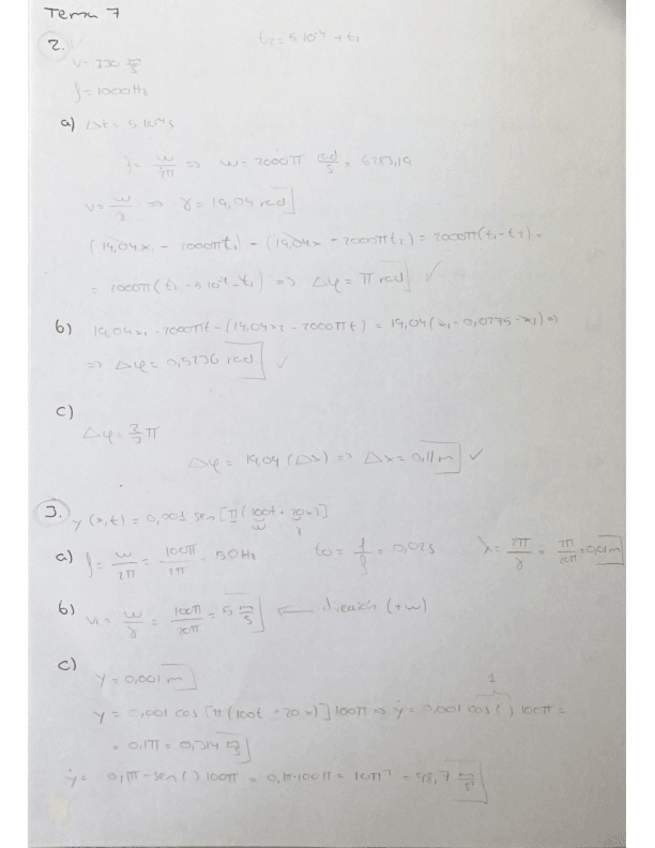 Tema 7
2.
t₂ = 5·10⁻⁴ + t₁
v = 330 m/s
f = 1000 Hz
a) Δt = 5·10⁻⁴ s
f = w/2π => w = 2000π rad/s = 6283,19
v = w/γ => γ = 19,04 rad
(19,04x₁ - 2000πt₁) - (19,04x - 2000πt₂) = 2000π(t₁-t₂) =
= 2000π(t₁ - 5·10⁻⁴ - t₁) => Δφ = π rad ✓
b) 19,04x₁ - 2000πt - (19,04x₂ - 2000πt) = 19,04(x₁ - 0,0275 - x₁) =>
=> Δφ = 0,5236 rad ✓
c)
Δφ = 2/3 π
Δφ = 19,04 (Δx) => Δx = 0,11 m ✓
3. y(x,t) = 0,001 sen [π(100t + 20x)]
w γ
a) f = w/2π = 100π/2π = 50 Hz t₀ = 1/f = 0,02 s λ = 2π/γ = 2π/20π = 0,1 m
b) v = w/γ = 100π/20π = 5 m/s ←
c)
y = 0,001 m
1
y = 0,001 cos [π(100t + 20x)] 100π => ẏ = 0,001 cos( ) 100π =
= 0,1π = 0,314 m/s
ÿ = 0,1π - sen( ) 100π = 0,1π·100π = 10π² = 98,7 m/s²